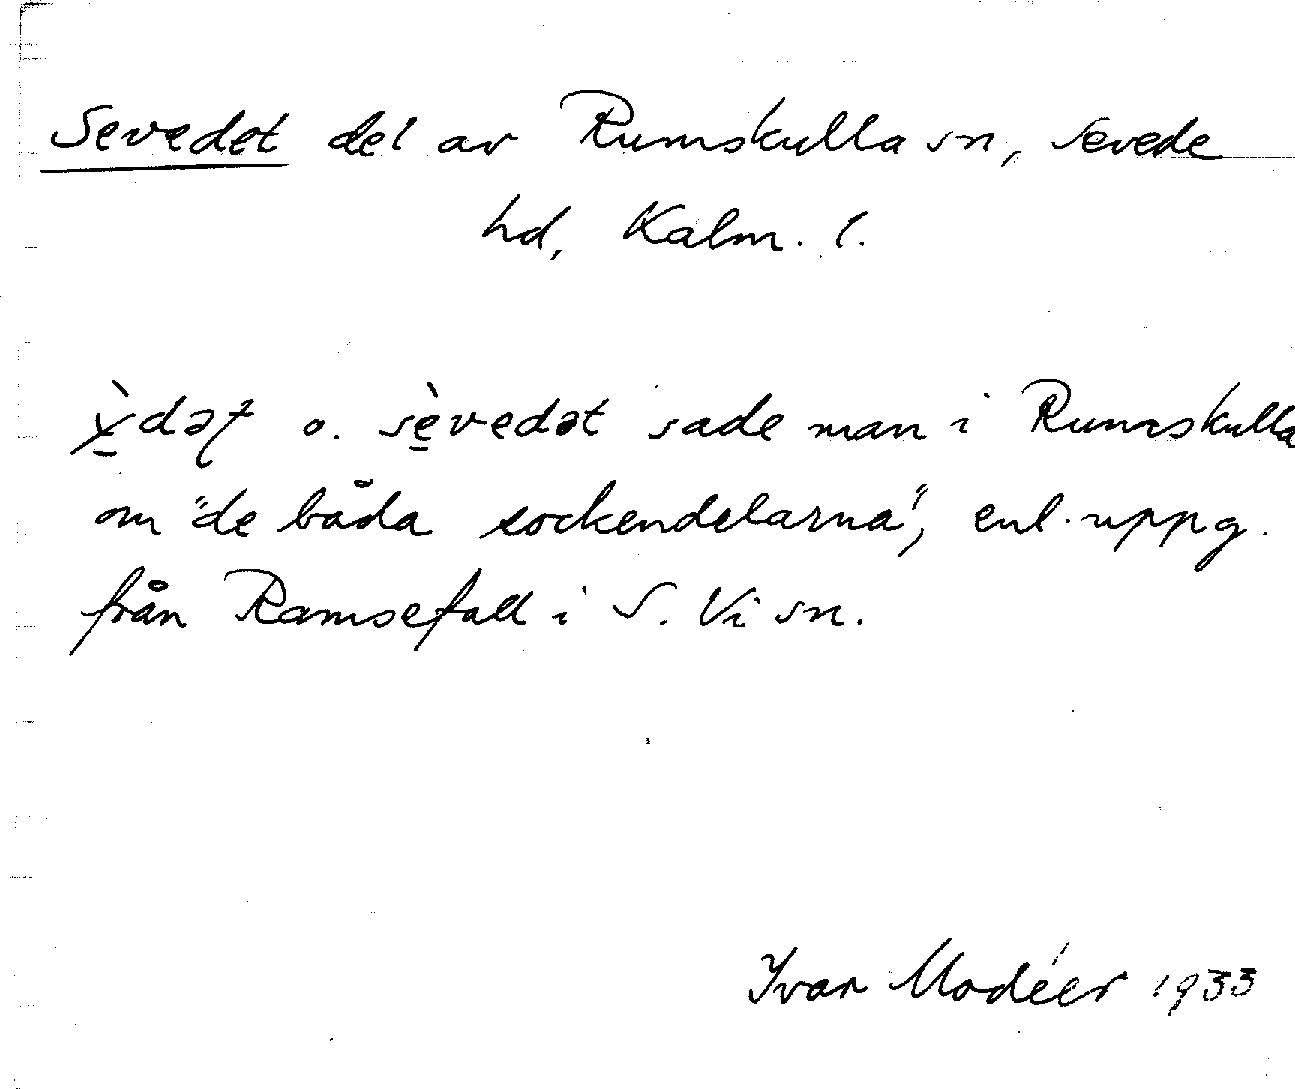 Sevedet del av Rumskulla sn, Sevede
hd, Kalm. l.
o. sè̱vedət sade man i Rumskulla
om "de båda sockendelarna", enl. uppg.
från Ramsefall i S. Vi sn.
Ivar Modéer 1933